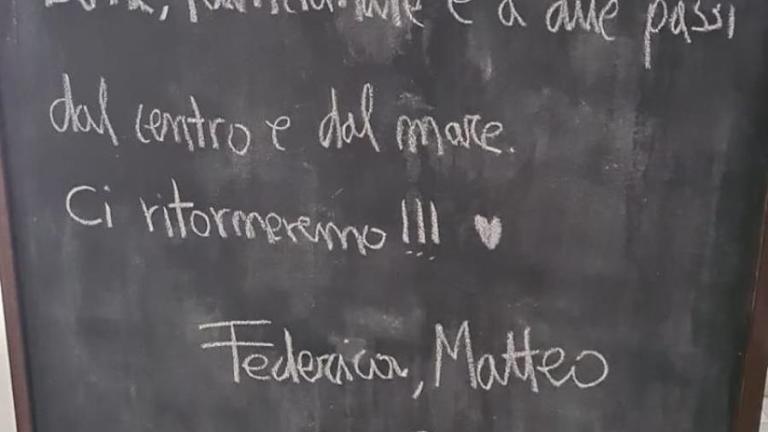 e a due passi
dal centro e dal mare.
Ci ritorneremo!!! ♥
Federica, Matteo